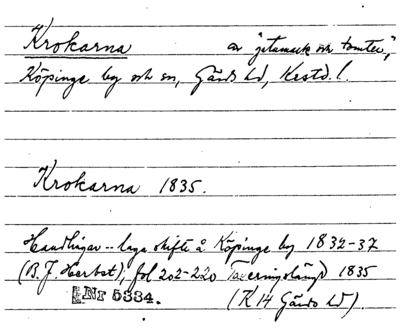 Krokarna av "getamark och tomter",
Köpinge by och sn, Gärds hd, Krstd. l.
Krokarna 1835.
Handlingar -- laga skifte å Köpinge by 1832-37
(B. J. Herbst); fol 202-220 Taxeringslängd 1835
LNr 5334. (K14 Gärds hd).